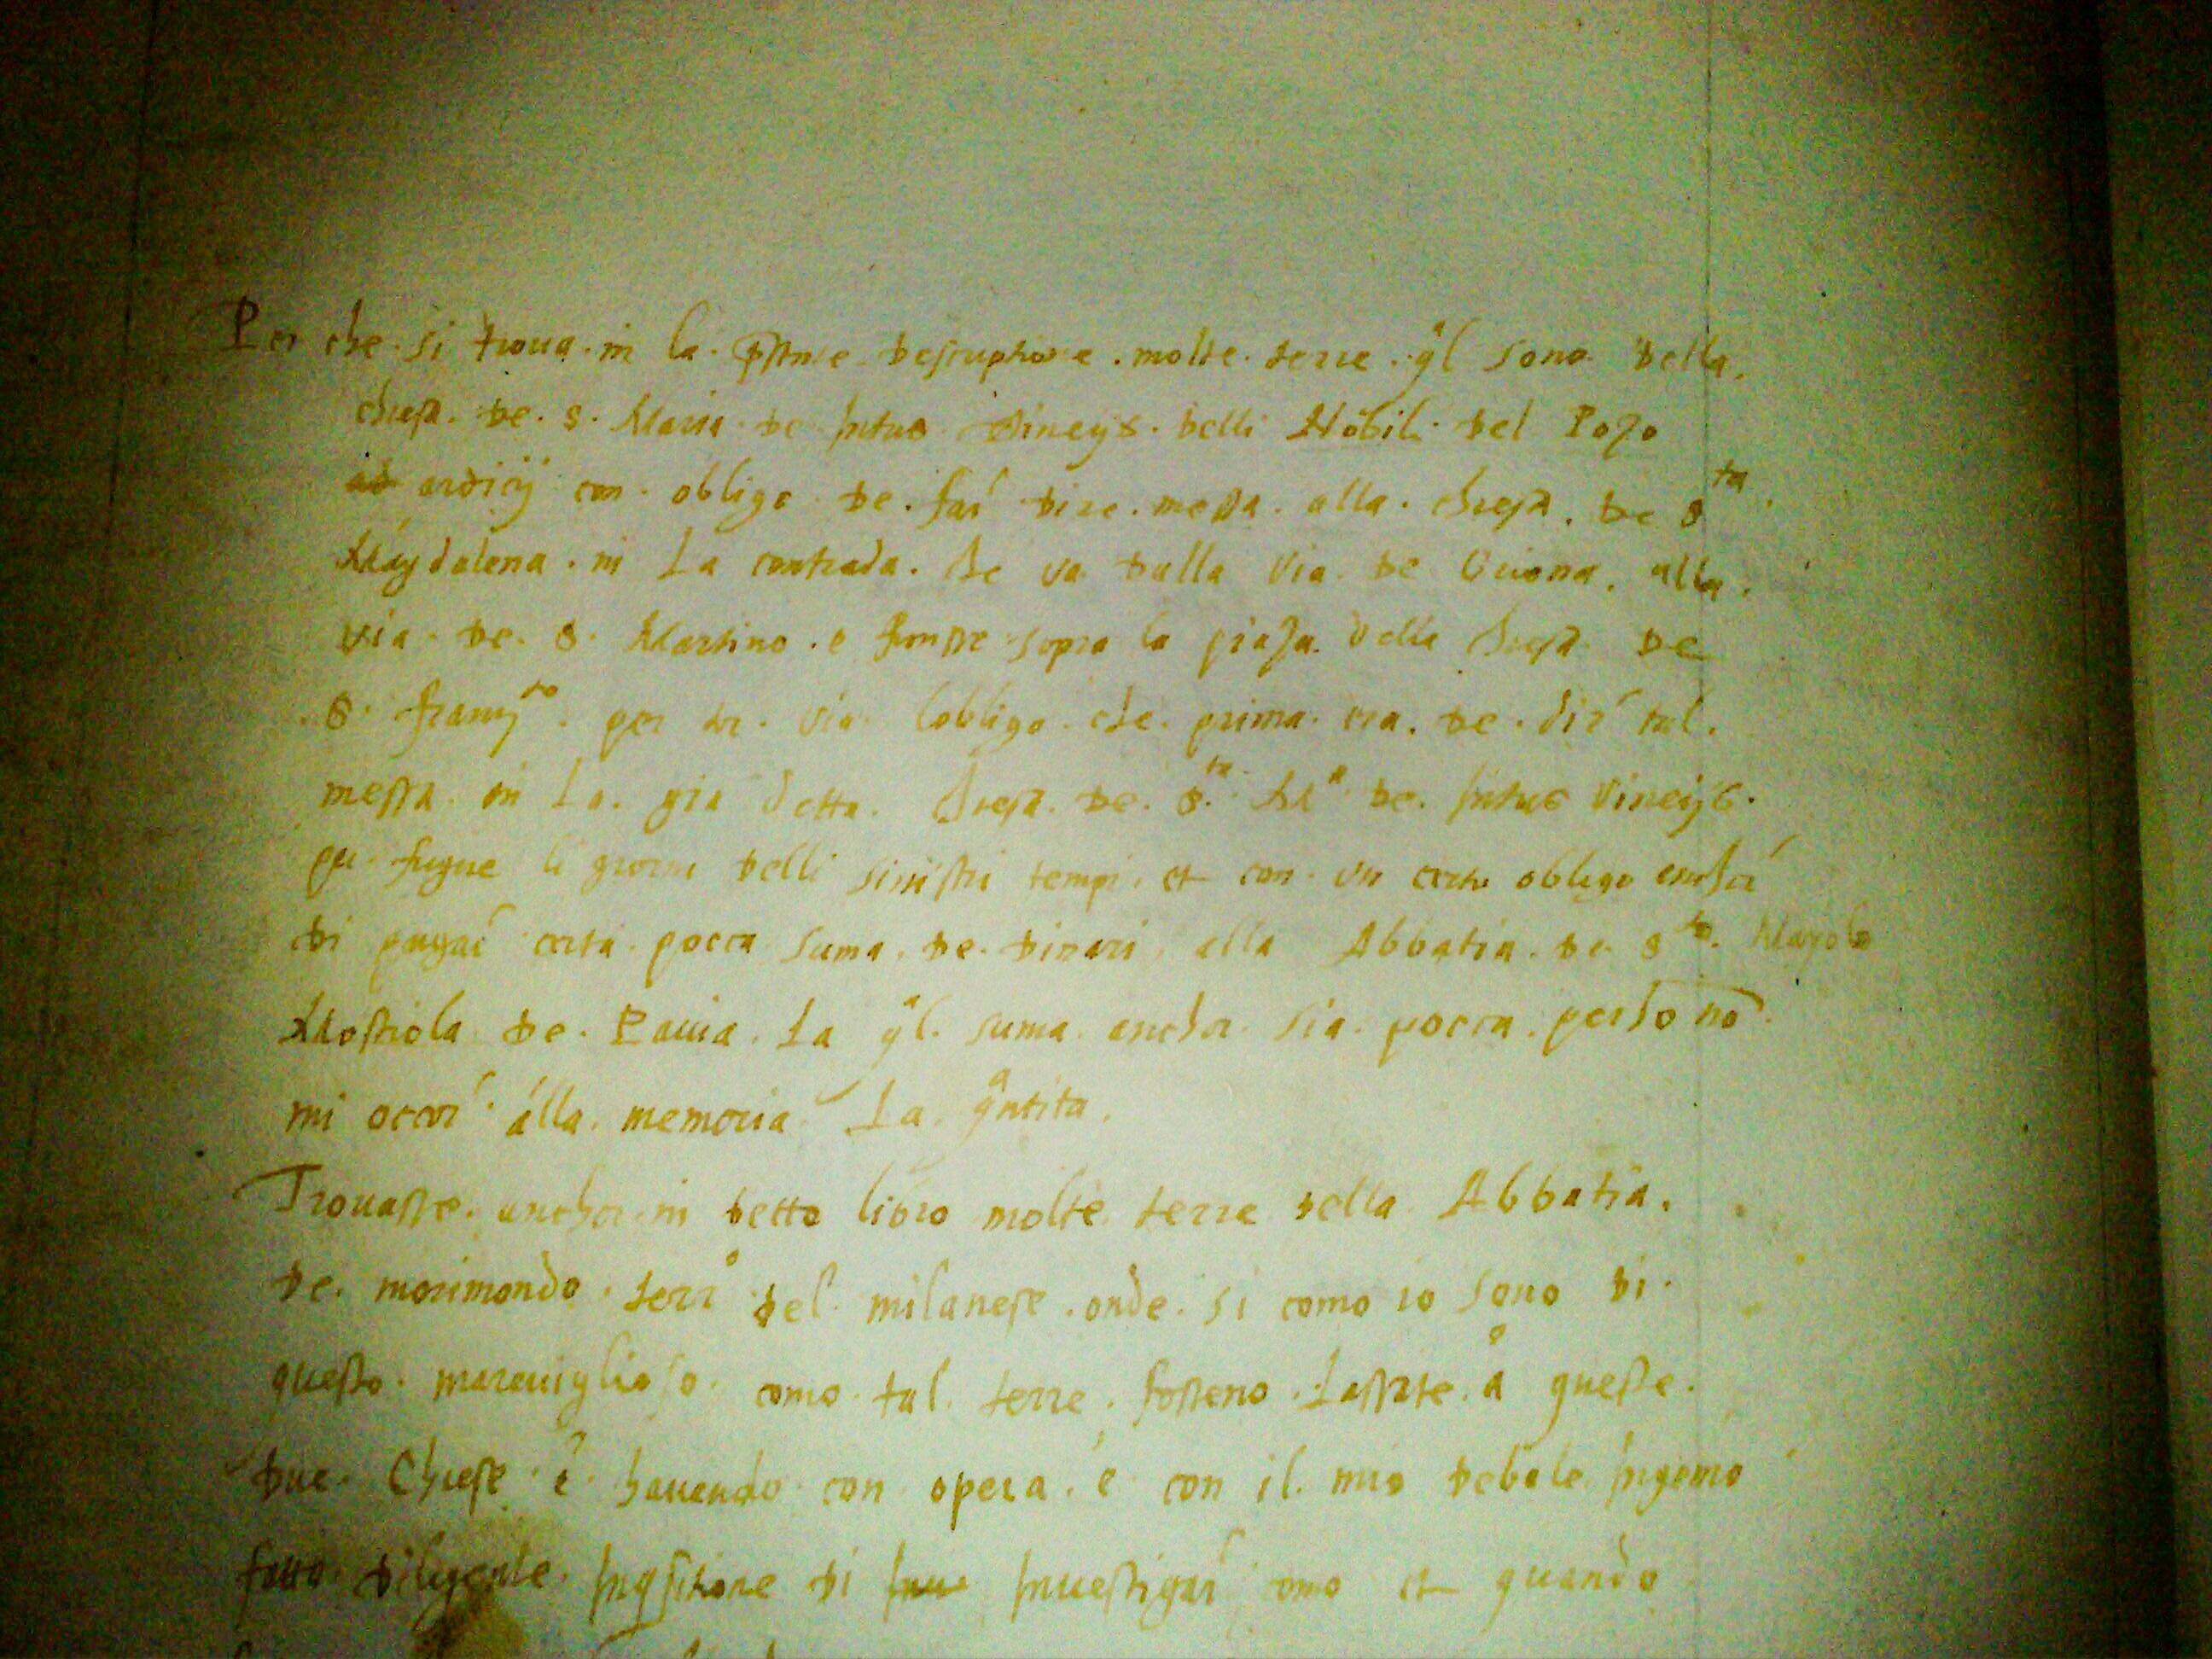 Per che. si troua. in la. pñte descriptione. molte. terre. ql sono della.
chiesa. de. s. Maria. de intus vineijs. delli Nobili. del Pozo
ardicij con. obligo. de. far dire. messa. alla. chiesa. de s ta.
Magdalena. in La contrada. che va dalla via. de alla.
via. de. s. Martino. e sopra la piaza. della chiesa de
s. franc co. per via lobligo. che. prima. era. de. dir tal.
messa. in La. gia detta. chiesa. de. s. ta M a. de. intus vineijs.
per fugire li giorni delli sinistri tempi. et con. un certo obligo anchor
di pagar certa. pocca suma. de. dinari. alla Abbatia. de s to. Mayolo
Mostiola de. Pauia. La ql. suma. anchor. sia. pocca. perho nõ.
mi occor alla. memoria. La. qntita.
Trouasse. anchor in detto libro molte. terre della. Abbatia.
de. morimondo. terr del. milanese. onde. si como io sono di.
questo. marauiglioso. como. tal. terre. fosseno. Lassate. a queste.
due. Chiese. é. hauendo. con opera. é con il. mio debole. ingenio
fatto. diligente. inqsitione di inuestigar como et quando